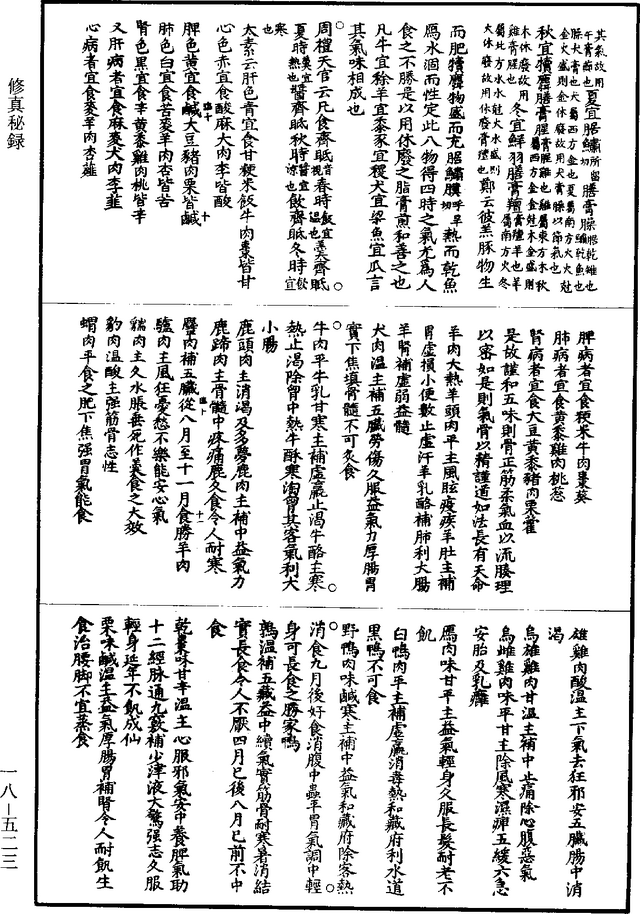 其氣故用
午膏節也 夏宜腒鱐 膳膏臊
秋宜犢麛膳膏腥
冬宜鮮羽膳膏羶
鄭云彼羔豚物生
而肥犢麛物盛而充腒鱐暵熱而乾魚
鴈水涸而性定此八物得四時之氣尤爲人
食之不勝是以用休廢之脂膏煎和善之也
凡牛宜稌羊宜黍豕宜稷犬宜梁魚宜瓜言
其氣味相成也
周禮天官云凡食齊眡春時羹齊眡
夏時醬齊眡秋時飲齊眡冬時
太素云肝色青宜食甘粳米飯牛肉棗皆甘
心色赤宜食酸麻犬肉李皆酸
脾色黃宜食鹹大豆豬肉栗皆鹹
肺色白宜食苦麥羊肉杏皆苦
腎色黑宜食辛黃黍雞肉桃皆辛
又肝病者宜食麻麥犬肉李韭
心病者宜食麥羊肉杏薤
脾病者宜食粳米牛肉棗葵
肺病者宜食黃黍雞肉桃葱
腎病者宜食大豆黃黍豬肉栗藿
是故謹和五味則骨正筋柔氣血以流腠理
以密如是則氣骨以精謹道如法長有天命
羊肉大熱羊頭肉平主風眩疫疾羊肚主補
胃虛損小便數止虛汗羊乳酪補肺利大腸
羊腎補虛弱益髓
犬肉溫主補五臟勞傷久服益氣力厚腸胃
實下焦填骨髓不可炙食
牛肉平牛乳甘寒主補虛羸止渴牛酪主寒
熱止渴除胷中熱牛酥寒淘胷其客氣利大
小腸
鹿頭肉主消渴及多夢鹿肉主補中益氣力
鹿蹄肉主骨髓中疼痛鹿久食令人耐寒
麞肉補五臟從八月至十一月食勝羊肉
驢肉主風狂憂愁不樂能安心氣
貒肉主久水脹垂死作羹食之大效
豹肉溫酸主强筋骨志性
蝟肉平食之肥下焦强胃氣能食
雄雞肉酸溫主下氣去狂邪安五臟腸中消
渴
烏雄雞肉甘溫主補中止痛除心腹惡氣
烏雌雞肉味平甘主除風寒濕痺五緩六急
安胎及乳癰
鴈肉味甘平主益氣輕身久服長髮耐老不
飢
白鴨肉平主補虛羸消毒熱和藏府利水道
黑鴨不可食
野鴨肉味鹹寒主補中益氣和藏府除客熱
消食九月後好食消腹中蟲平胃氣調中輕
身可長食之勝家鴨
鶉溫補五藏益中續氣實筋骨耐寒暑消結
實長食令人不厭四月已後八月已前不中
食
乾棗味甘辛溫主心服邪氣安中養脾氣助
十二經脉通九竅補少津液大驚强志久服
輕身延年不飢成仙
栗味鹹溫主益氣厚腸胃補腎令人耐飢生
食治腰脚不宜蒸食
修真秘録
一八—五二三